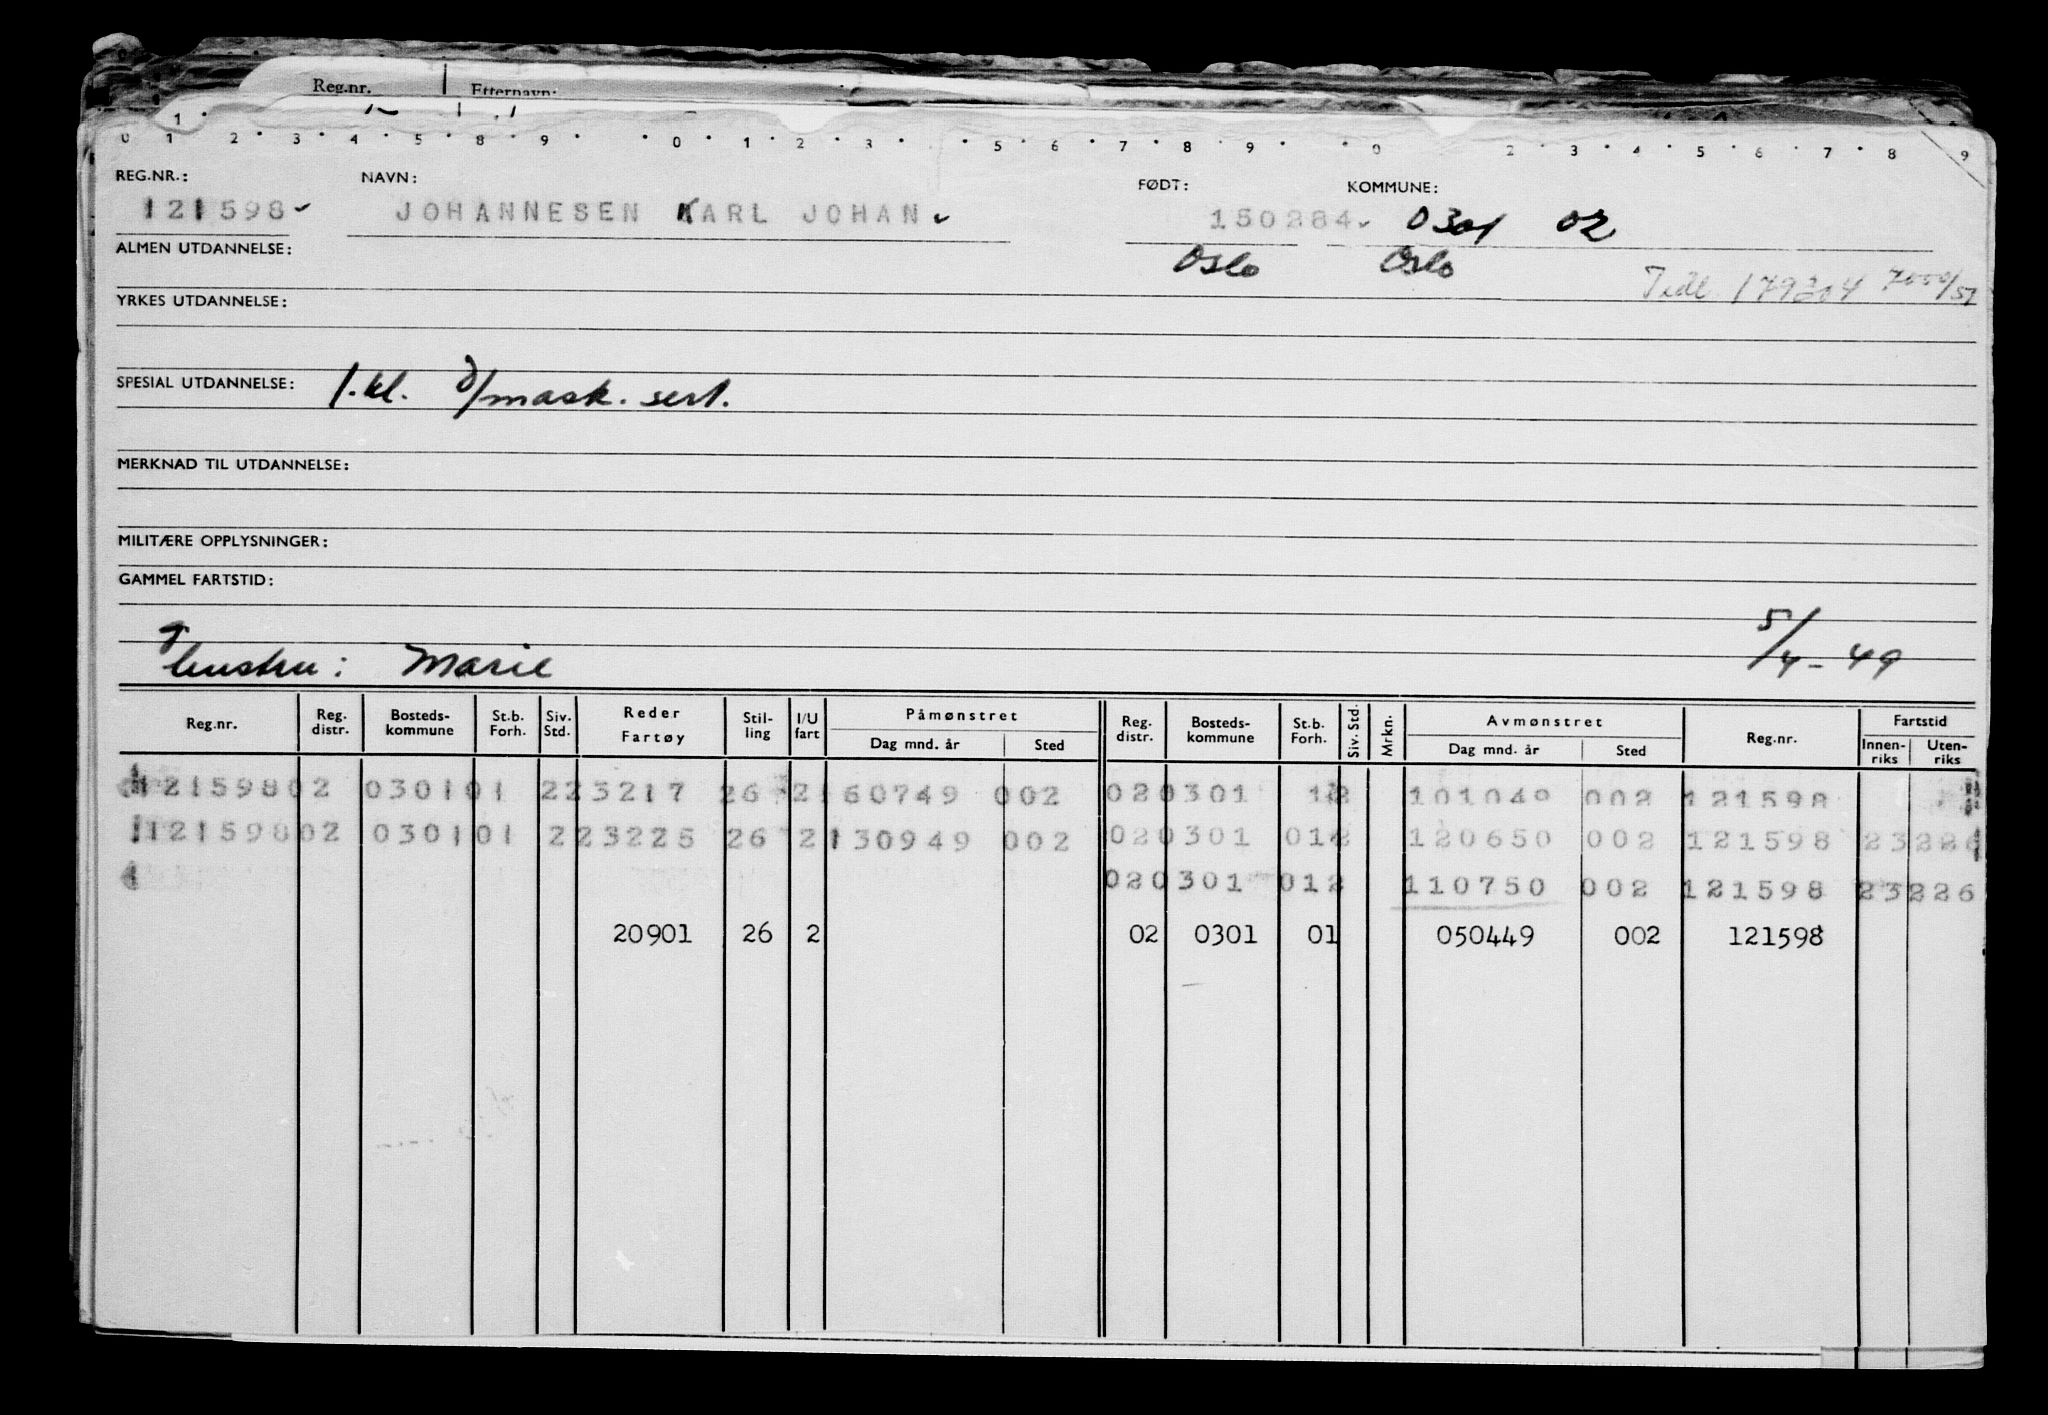 Reg.nr. Etternavn:
1
0 1 2 3 4 5 8 9 0 1 2 3 5 6 7 8 9 0 2 3 4 5 6 7 8 9
REG.NR.: NAVN: FØDT: KOMMUNE:
121598 JOHANNESEN KARL JOHAN 150284 0301 02
ALMEN UTDANNELSE: Oslo Oslo
Tidl. 179304
YRKES UTDANNELSE:
SPESIAL UTDANNELSE: 1.kl. d/mask. sert.
MERKNAD TIL UTDANNELSE:
MILITÆRE OPPLYSNINGER:
GAMMEL FARTSTID:
Hustru: Marie 5/4-49
Reg.nr. Reg. distr. Bosteds-kommune St.b. Forh. Siv. Std. Reder Fartøy Stil-ling I/U fart Påmønstret Dag mnd. år Sted Reg. distr. Bosteds-kommune St.b. Forh. Siv. Std. Mrkn. Avmønstret Dag mnd. år Sted Reg.nr. Fartstid Innen-riks Uten-riks
121598 02 0301 01 2 23217 26 2 160749 002 02 0301 12 101049 002 121598
121598 02 0301 01 2 23225 26 2 130949 002 02 0301 012 120650 002 121598 23226
02 0301 012 110750 002 121598 23226
20901 26 2 02 0301 01 050449 002 121598